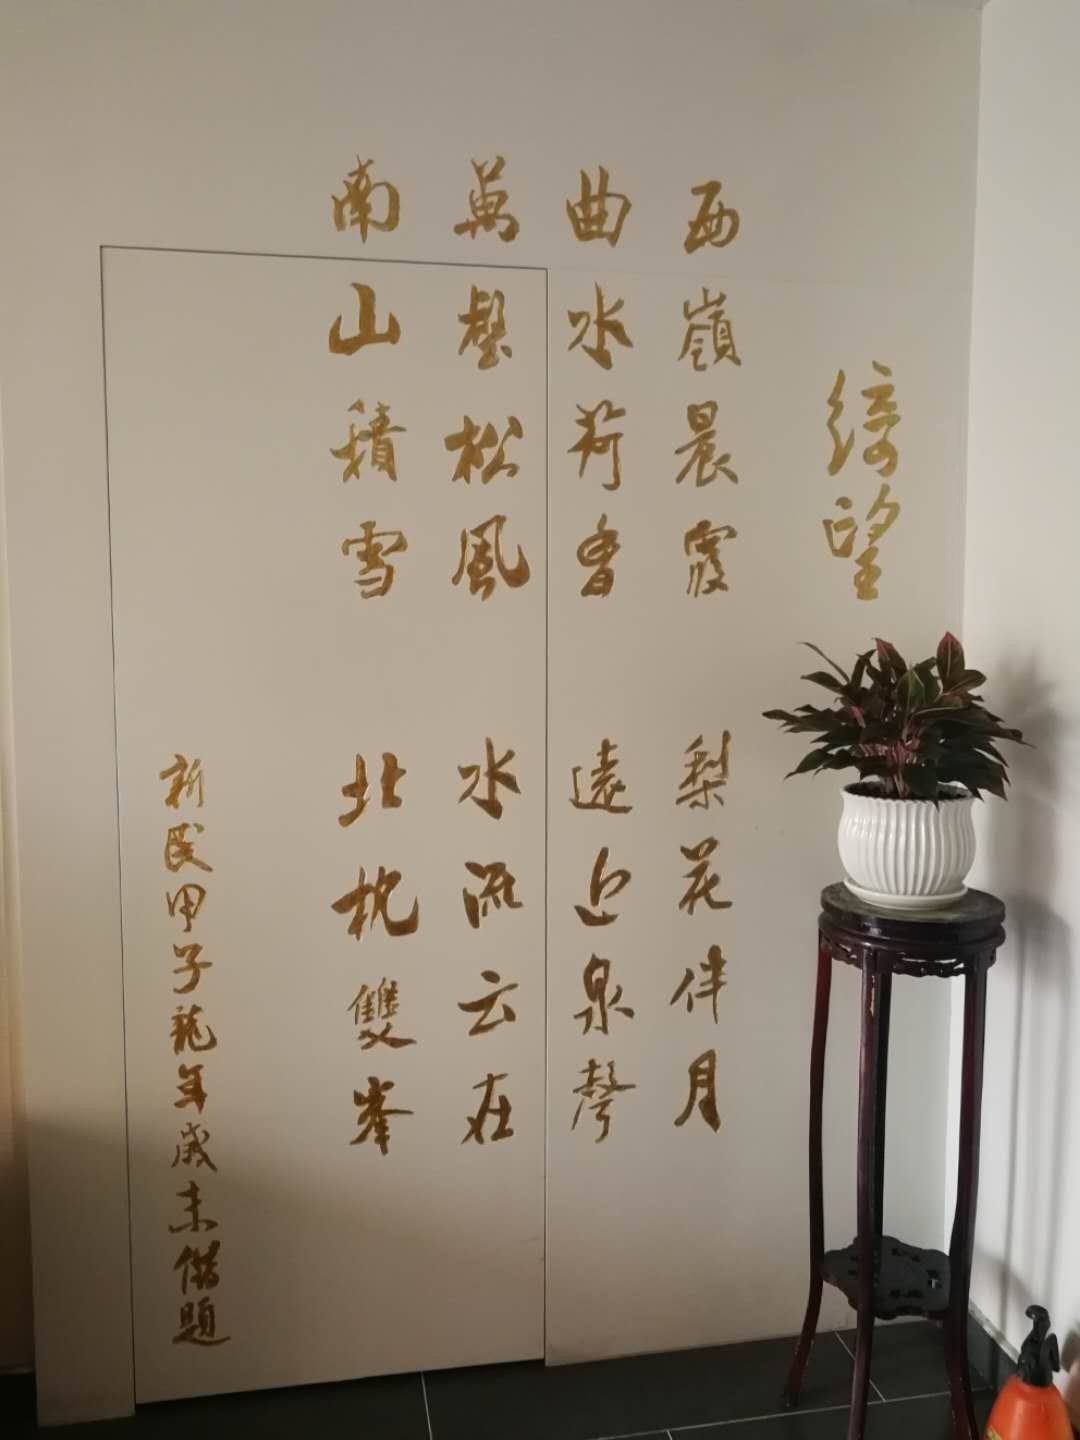 绮望
西嶺晨霞 梨花伴月
曲水荷香 遠近泉聲
萬壑松風 水流云在
南山積雪 北枕雙峯
甲子龍年歲末偕題